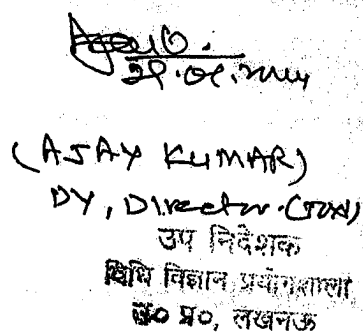 (AJAY KUMAR)
DY, Director. (Tox)
उप निदेशक
विधि विज्ञान प्रयोगशाला
उ० प्र०, लखनऊ